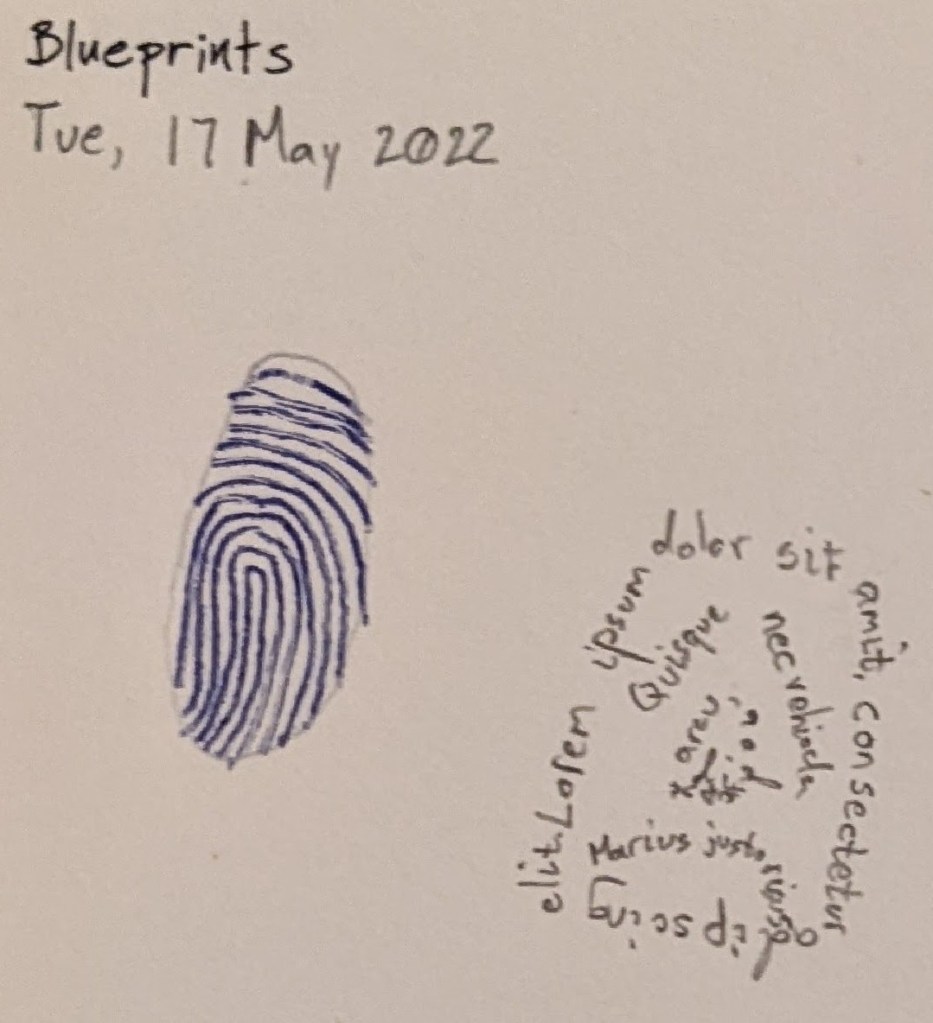 Blueprints
Tue, 17 May 2022
Lorem ipsum dolor sit amit, consectetur adipscing elit.
Quisque nec vehicula
Marius justo
arcu